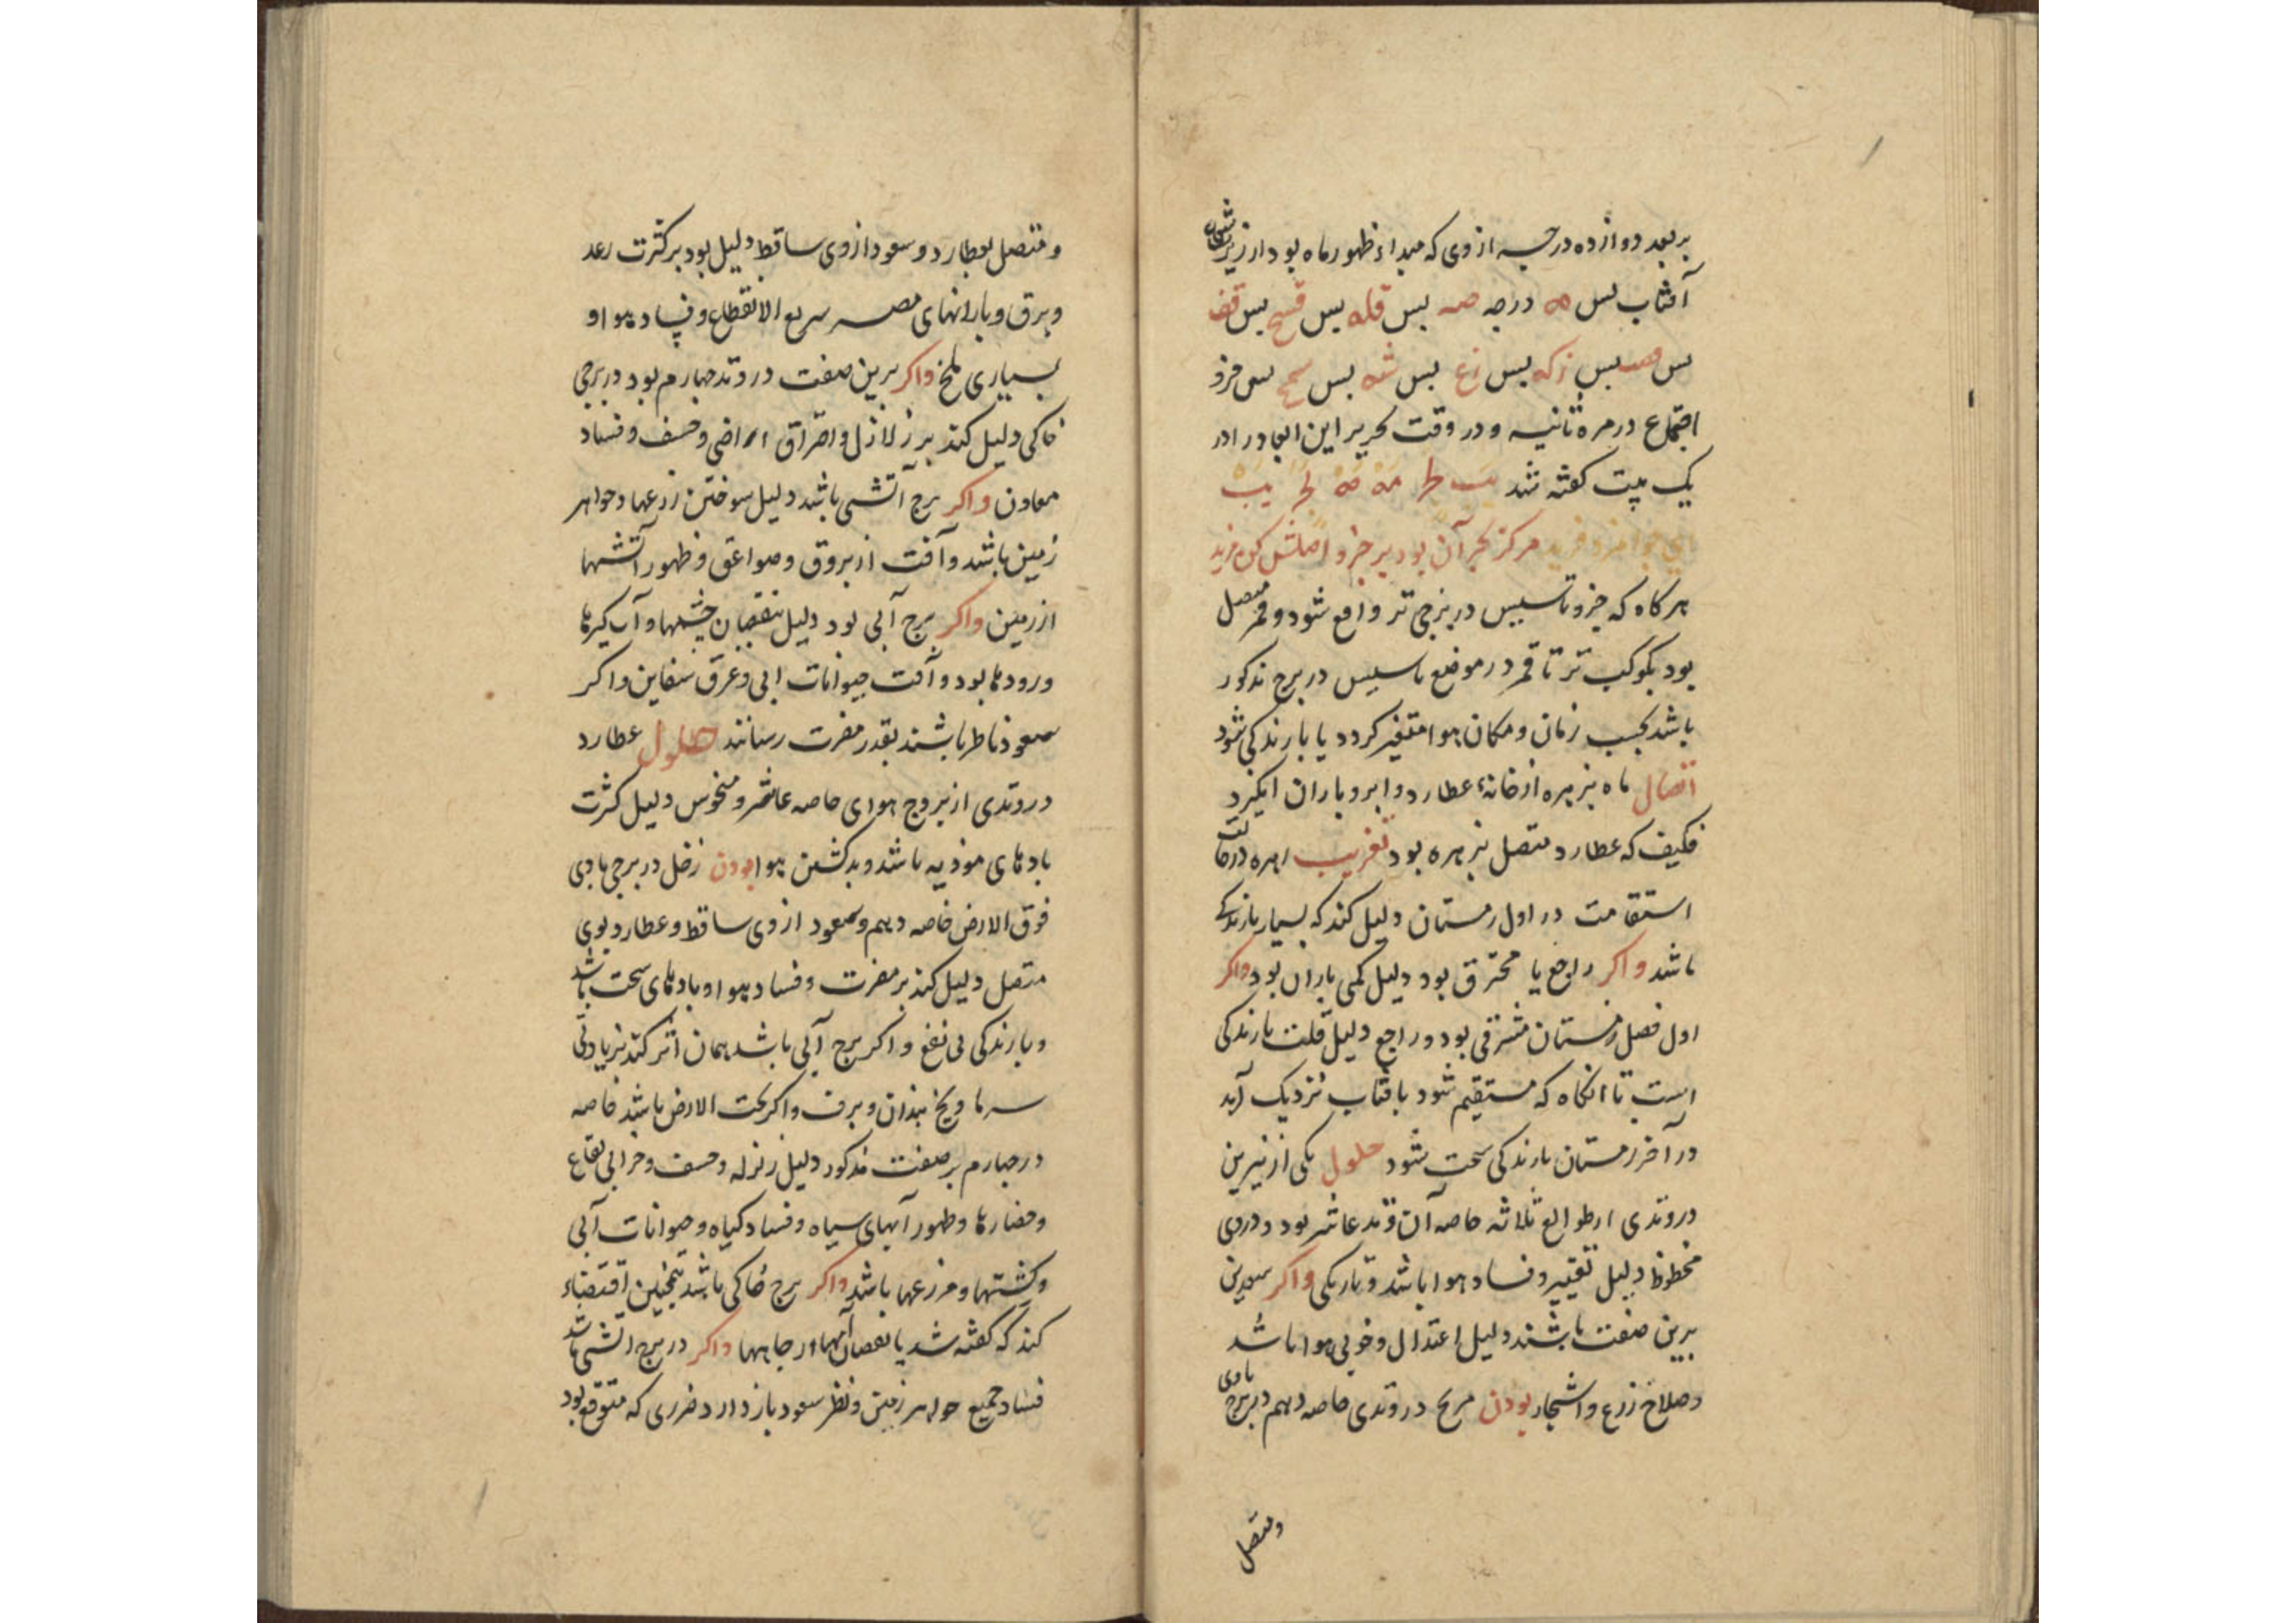 بر بعد دوازده درجه از وی که مبداء ظهور ماه بود از زیر شعاع
آفتاب پس مه درجه صه پس قله پس قسح پس قف
پس پس زکه پس رع پس شه پس سمح پس جزو
اجتماع در مره ثانیه و در وقت تحریر این ابعاد را در
یک بیت کفته شد یب لج مه مه لج یب
ای جوانمرد فرید مرکز بحرآن بود بر جزو اصلش کن مزید
هرکاه که جزو تاسیس در برجی تر واقع شود و قمر متصل
بود بکوکب تر تا قمر در موضع تاسیس در برج مذکور
باشد بحسب زمان و مکان هوا متغیر کردد یا بارندکی شود
اتصال ماه بزهره از خانهٔ عطارد و ابر و باران انکیزد
فکیف که عطارد متصل بزهره بود تغریب زهره در حالت
استقامت در اول زمستان دلیل کند که بسیار بارندکی
باشد و اکر راجع یا محترق بود دلیل کمی باران بود و اکر
اول فصل زمستان مشرقی بود و راجع دلیل قلت بارندکی
است تا انکاه که مستقیم شود بافتاب نزدیک آید
در آخر زمستان بارندکی سخت شود حلول یکی از نیرین
در وتدی از طوالع ثلاثه خاصه آن وتد عاشر بود و در وی
محظوظ دلیل تغییر و فساد هوا باشد و تاریکی و اکر سعدین
برین صفت باشند دلیل اعتدال و خوبی هوا باشد
و صلاح زرع و اشجار بودن مریخ در وتدی خاصه دهم در برج بادی
ومتصل
ومتصل بعطارد و سعود از وی ساقط دلیل بود بر کثرت رعد
و برق و بارانهای مصر سریع الانقطاع و فساد هوا و
بسیاری ملخ و اکر برین صفت در وتد چهارم بود در برجی
خاکی دلیل کند بر زلازل و احتراق اراضی و خسف و فساد
معادن و اکر برج آتشی باشد دلیل سوختن زرعها و جواهر
زمین باشد و آفت از بروق و صواعق و ظهور آتشها
از زمین و اکر برج آبی بود دلیل نقصان چشمها و آب کیرها
و رودها بود و آفت حیوانات ابی و غرق سفاین و اکر
سعود ناظر باشند بقدر مضرت رسانند حلول عطارد
در وتدی از بروج هوای خاصه عاشر و منحوس دلیل کثرت
بادهای موذیه باشد و بد کشتن هوا بودن زحل در برجی بادی
فوق الارض خاصه دهم و سعود از وی ساقط و عطارد بوی
متصل دلیل کند بر مضرت و فساد هوا و بادهای سخت باشد
و بارندکی بی نفع و اکر برج آبی باشد همان اثر کند بزیادتی
سرما و یخ بندان و برف و اکر تحت الارض باشد خاصه
در چهارم بر صفت مذکور دلیل زلزله و خسف و خرابی بقاع
و حصارها و ظهور آبهای سیاه و فساد کیاه و حیوانات آبی
و کشتها و مزرعها باشد و اکر برج خاکی باشد همچنین اقتضاء
کند که کفته شد یا نقصان آبها از چاهها و اکر در برج اتشی باشد
فساد جمیع جواهر زمین و نظر سعود باز دارد ضرری که متوقع بود